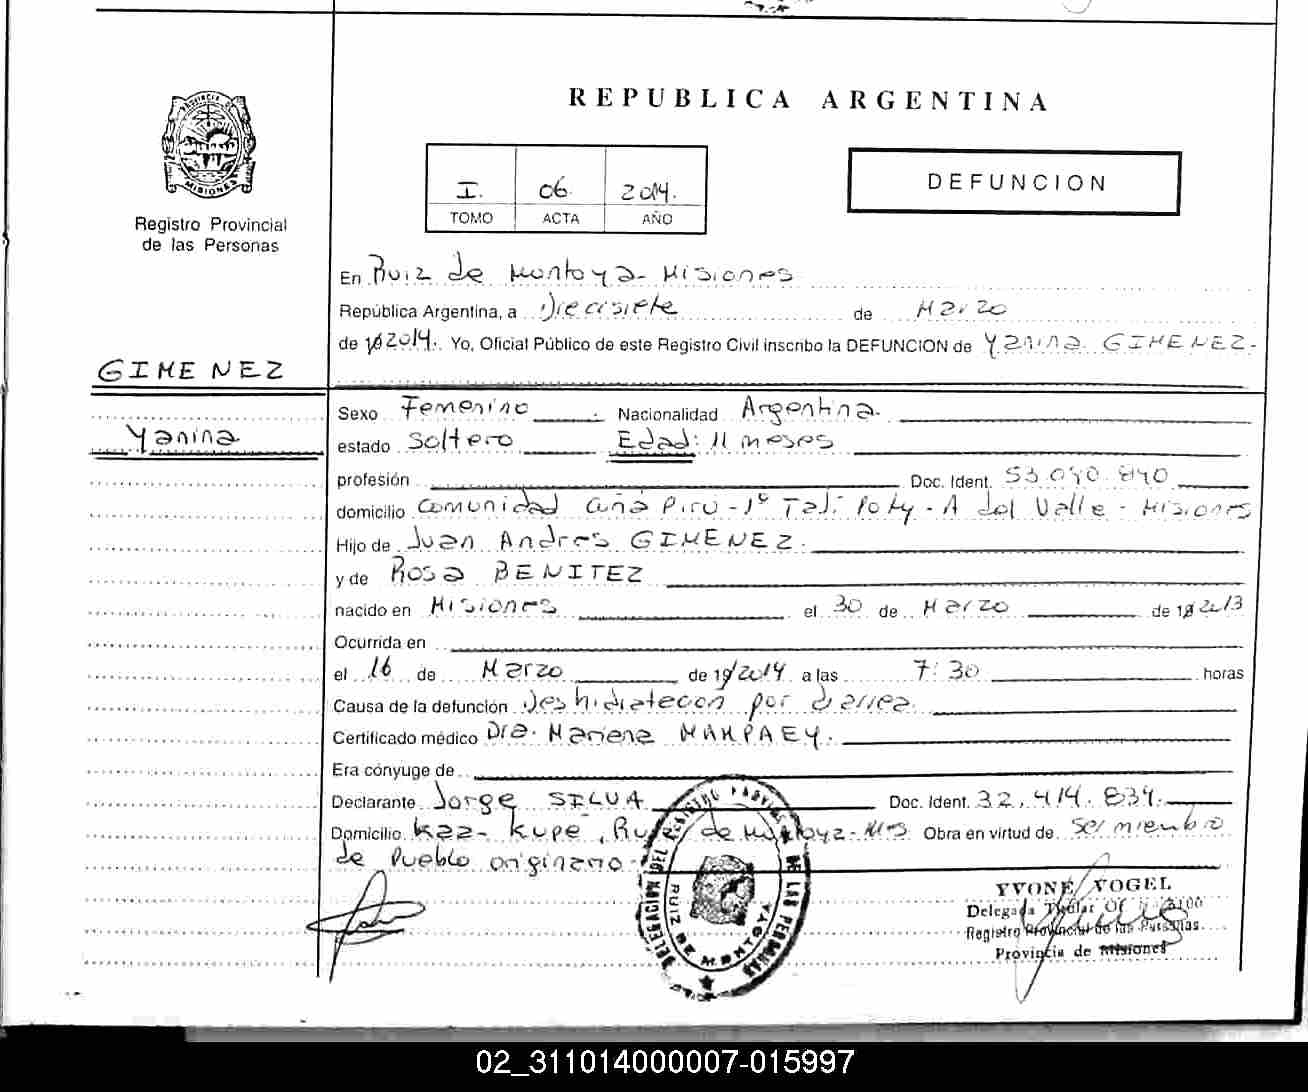 REPUBLICA ARGENTINA
PROVINCIA DE
MISIONES
Registro Provincial
de las Personas
I. 06 2014.
TOMO ACTA AÑO
DEFUNCION
En Ruiz de Montoya - Misiones
República Argentina, a Diecisiete de Marzo
de 2014. Yo, Oficial Público de este Registro Civil inscribo la DEFUNCION de Yanina GIMENEZ.
GIMENEZ
Yanina
Sexo Femenino Nacionalidad Argentina.
estado Soltero Edad: 11 meses
profesión Doc. Ident. 53.040.840
domicilio Comunidad Piru - 1º Poty - A del Valle - Misiones
Hijo de Juan Andres GIMENEZ.
y de Rosa BENITEZ
nacido en Misiones el 30 de Marzo de 2013
Ocurrida en
el 16 de Marzo de 19 2014 a las 7:30 horas
Causa de la defunción Deshidratecion por diarrea.
Certificado médico Dra. Mariena MAMPAEY.
Era cónyuge de
Declarante Jorge SILVA Doc. Ident. 32.414.834.
Domicilio Kaa-Kupe, Ruiz de Montoya - Mis Obra en virtud de Ser miembro
de Pueblo originario -
DELEGACION DEL REGISTRO PROVINCIAL DE LAS PERSONAS
RUIZ DE MONTOYA
YVONE VOGEL
Delegada Titular Of.
Registro Provincial de las Personas
Provincia de Misiones
02_311014000007-015997